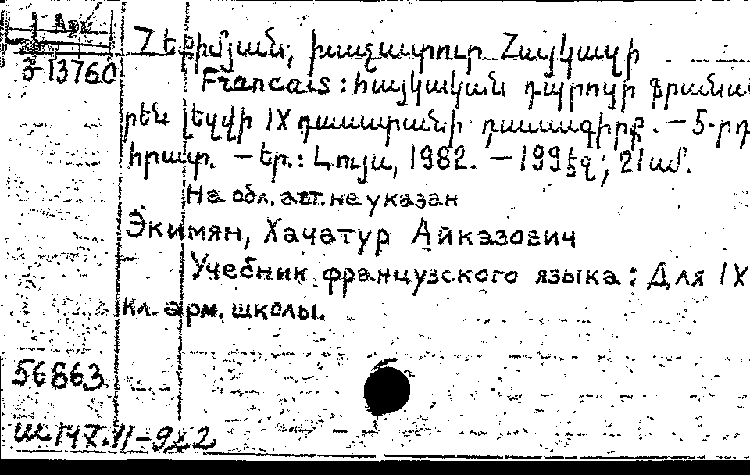 Арм
3-13760
Հեքիմյան, Խաչատուր Հայկազի
Francais : հայկական դպրոցի ֆրանսե
րեն լեզվի IX դասարանի դասագիրք. — 5-րդ
հրատ. — Եր.: Լույս, 1982. — 199 էջ; 21 սմ.
На обл. авт. не указан
Экимян, Хачатур Айказович
Учебник французского языка : Для IX
кл. арм. школы.
56863